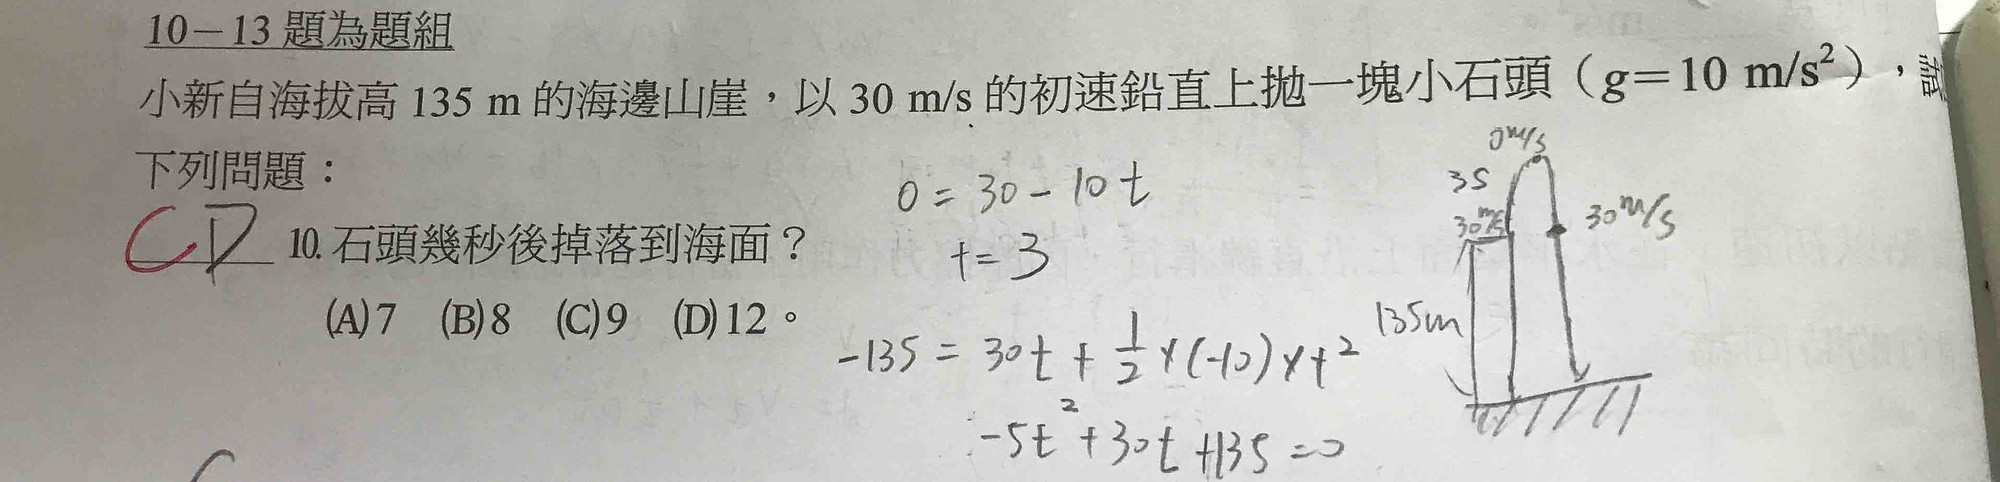 10－13 題為題組
小新自海拔高 135 m 的海邊山崖，以 30 m/s 的初速鉛直上拋一塊小石頭（g＝10 m/s²），
下列問題：
CD 10. 石頭幾秒後掉落到海面？
(A)7 (B)8 (C)9 (D)12。
0 = 30 - 10t
t = 3
-135 = 30t + 1/2 × (-10) × t²
-5t² + 30t + 135 = 0
0 m/s
3s
30 m/s
30 m/s
135m